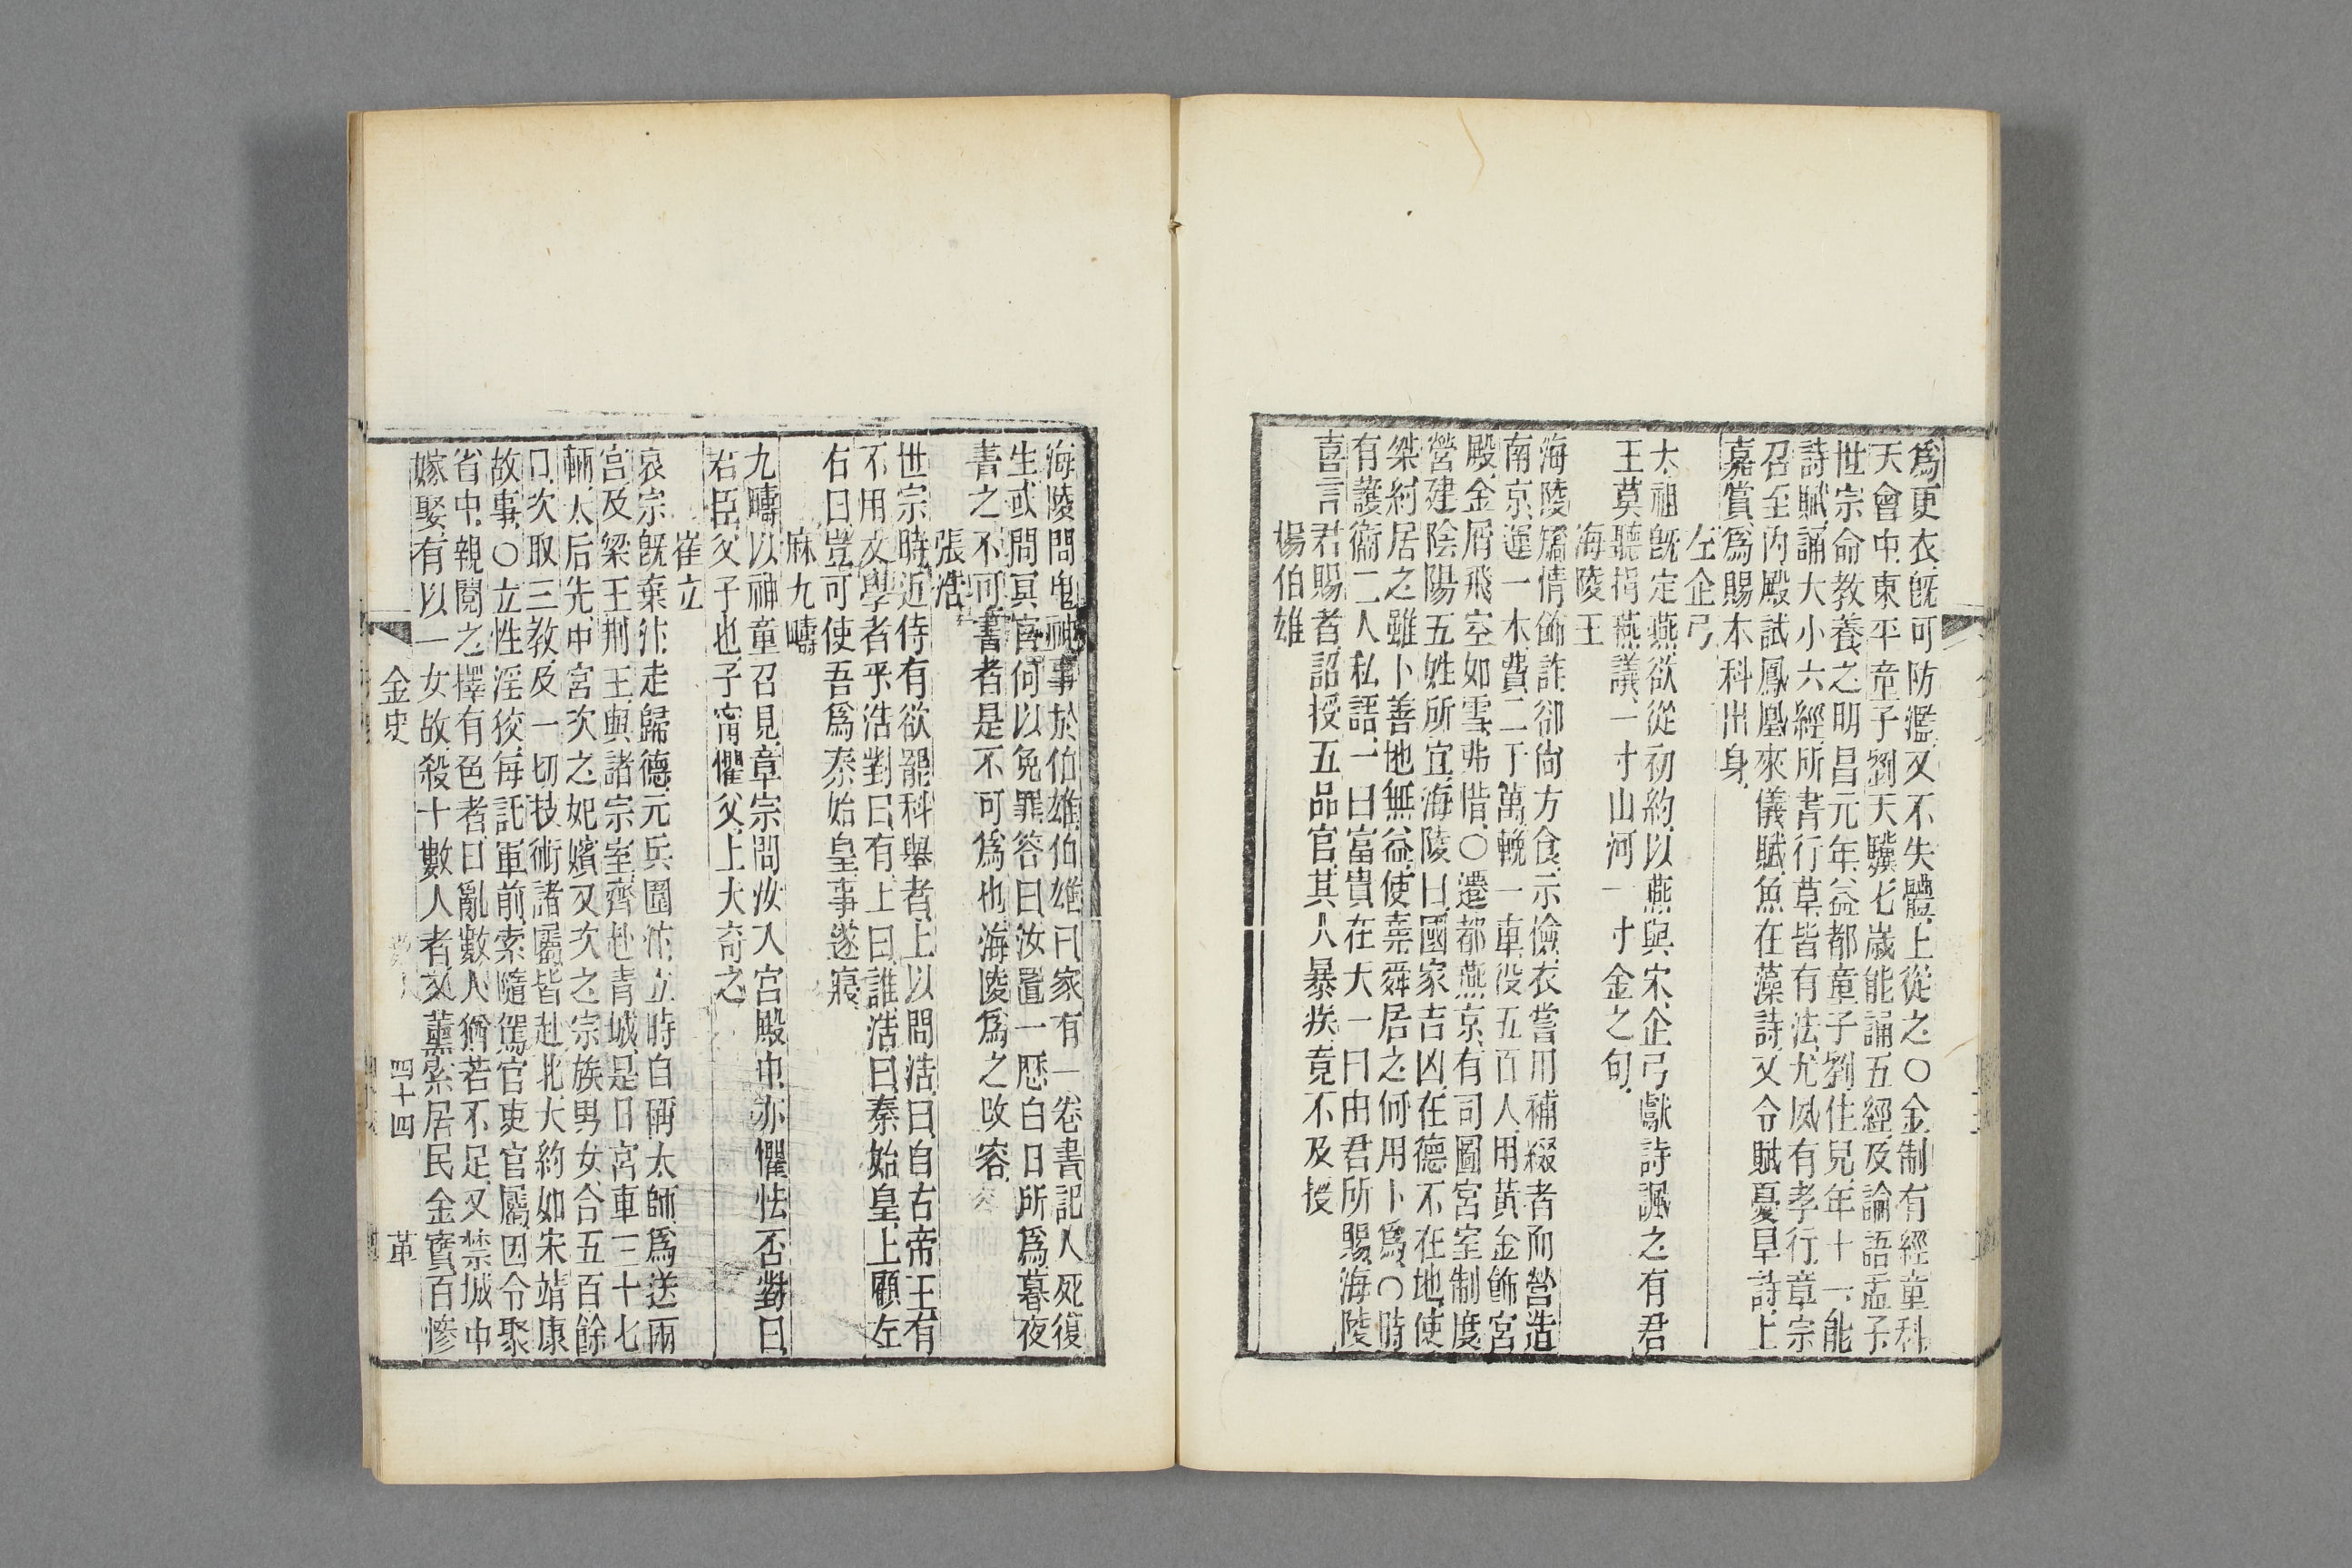 爲更衣、既可防濫、又不失體、上從之、〇金制有經童科
天會中、東平童子劉天驥七歲能誦五經、及論語孟子
世宗命教養之、明昌元年、益都童子劉住兒、年十一、能
詩賦、誦大小六經、所書行草、皆有法、尤夙有孝行、章宗
召至內殿、試鳳凰來儀賦、魚在藻詩、又令賦憂旱詩、上
嘉賞、爲賜本科出身、
左企弓
太祖既定燕、欲從初約、以燕與宋、企弓獻詩諷之、有君
王莫聽捐燕議、一寸山河一寸金之句、
海陵王
海陵矯情飾詐、卻尙方食、示儉、衣嘗用補綴者、而營造
南京、運一木、費二千萬、輓一車、役五百人、用黃金飾宮
殿、金屑飛空如雪、弗惜、〇遷都燕京、有司圖宮室制度
營建陰陽五姓所宜、海陵曰、國家吉凶、在德不在地、使
桀紂居之、雖卜善地無益、使堯舜居之、何用卜爲、〇時
有護衞二人私語、一曰富貴在天、一曰由君所賜、海陵
喜言君賜者、詔授五品官、其人暴疾、竟不及授
楊伯雄
海陵問鬼神事於伯雄、伯雄曰、家有一卷書、記人死復
生、或問冥官何以免罪、答曰、汝置一歷、白日所爲、暮夜
書之、不可書者、是不可爲也、海陵爲之改容、
張浩
世宗時、近侍有欲罷科舉者、上以問浩、曰自古帝王、有
不用文學者乎、浩對曰、有、上曰、誰、浩曰、秦始皇、上顧左
右曰、豈可使吾爲秦始皇、事遂寢
麻九疇
九疇以神童召見、章宗問汝入宮殿中、亦懼怯否、對曰
君臣、父子也、子甯懼父、上大奇之
崔立
哀宗既棄汴、走歸德、元兵圍汴、立時自稱太師、爲送兩
宮及梁王荆王、與諸宗室、齊赴青城、是日宮車三十七
輛、太后先、中宮次之、妃嬪又次之、宗族男女、合五百餘
口、次取三教、及一切技術諸屬、皆赴北、大約如宋靖康
故事、〇立性淫狡、每託軍前、索隨駕官吏官屬、因令聚
省中、親閱之、擇有色者、日亂數人、猶若不足、又禁城中
嫁娶、有以一女故、殺十數人者、又薰索居民金寶、百慘
金史 四十四 革